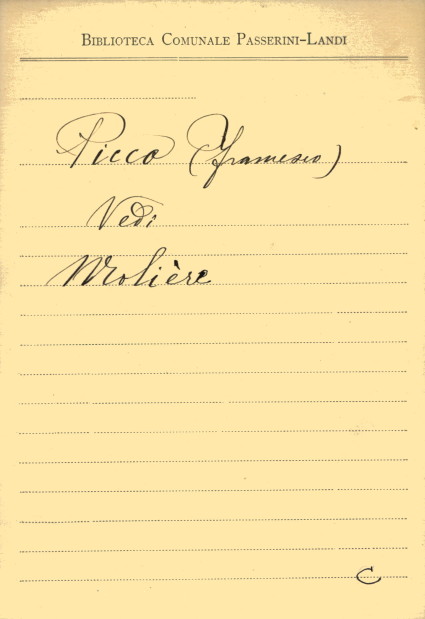 Biblioteca Comunale Passerini-Landi
Picco (Francesco)
Vedi
Molière
C